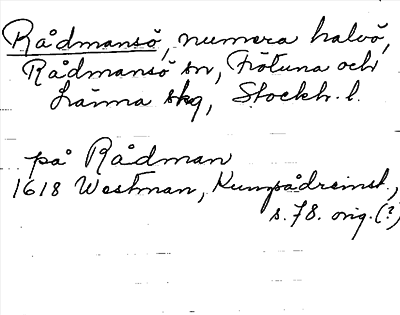 Rådmansö, numera halvö,
Rådmansö sn, Frötuna och
Länna skg, Stockh. l.
på Rådman
1618 Westman, Kumpådreinst.,
s. 78. orig. (?)